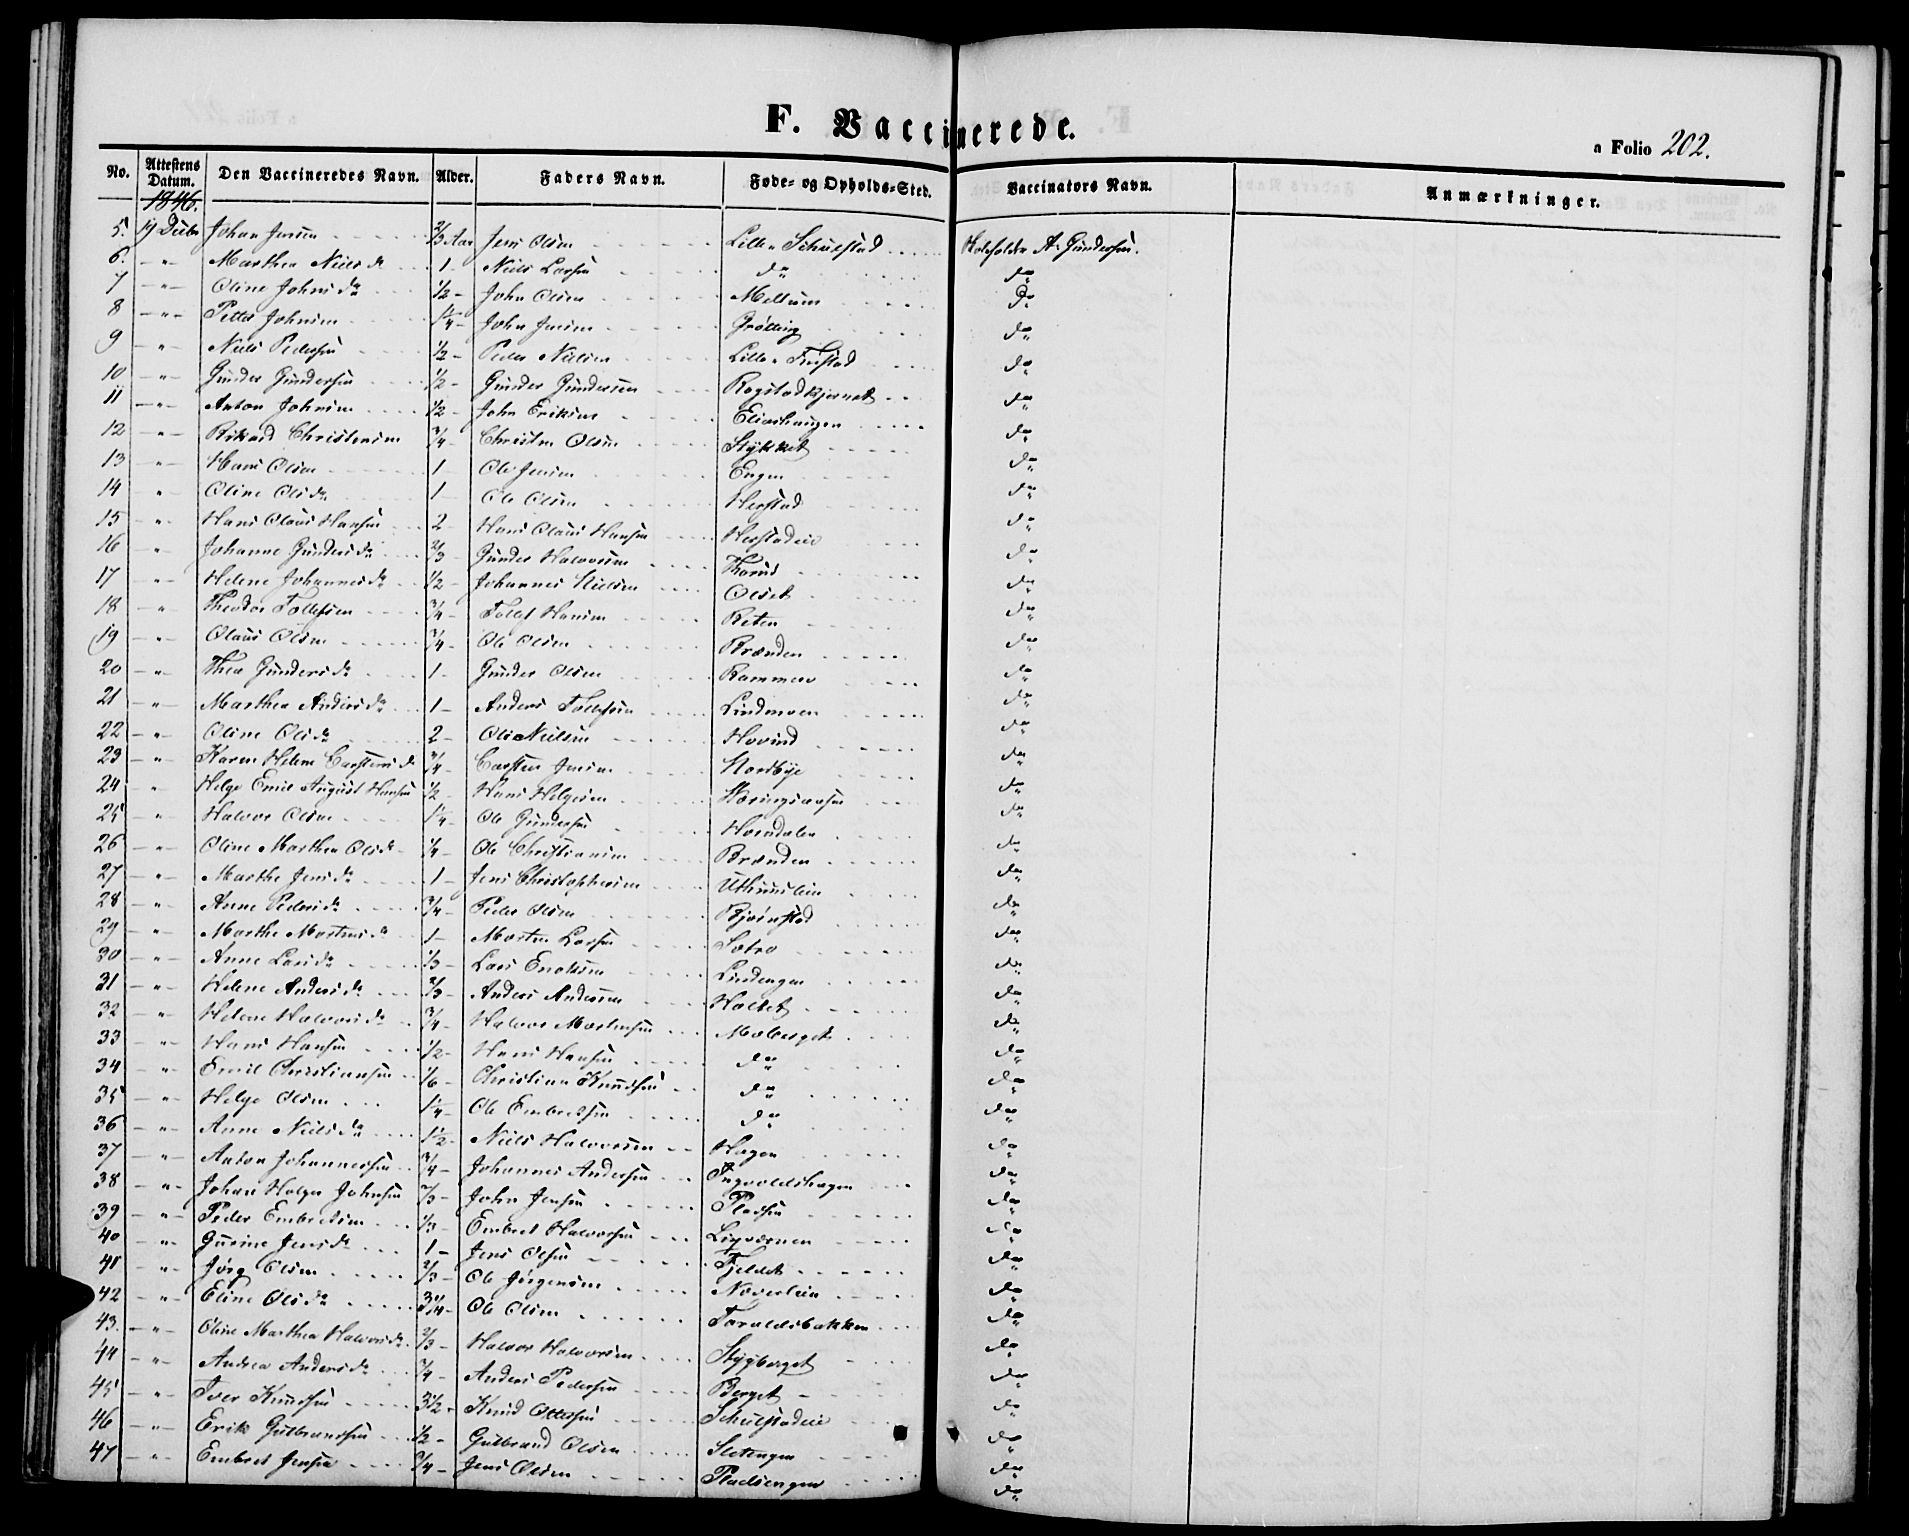 F. Vaccinerede.
a Folio 202.
No. Attestens Datum. Den Vaccineredes Navn. Alder. Faders Navn. Føde- og Opholds-Sted. Vaccinators Navn. Anmærkninger.
1846.
5. 19 Decbr Johan Jensen 2/3 Aar Jens Olsen Lille Schulstad A. Gundersen.
6. — " — Marthea Nielsdr 1 — Niels Larsen do do
7 — " — Oline Johnsdr 1/2 — John Olsen Mellum do
8 — " — Petter Johnsen 1/4 — John Jensen Grøtting do
9 — " — Niels Pedersen 1/2 — Peder Nielsen Lille do
10 — " — Gunder Gundersen 1/2 — Gunder Gundersen Rogstadkjernet do
11 — " — Anton Johnsen 1/2 — John Eriksen Eliashaugen do
12 — " — Rikard Christensen 3/4 — Christen Olsen Stykket do
13 — " — Hans Olsen 1 — Ole Jensen Engen do
14 — " — Oline Olsdr 1 — Ole Olsen Herstad do
15 — " — Hans Olaus Hansen 2 — Hans Olaus Hansen Herstadeie do
16 — " — Johanne Gundersdr 2/3 — Gunder Halvorsen Thorud do
17 — " — Helene Johannesdr 1/2 — Johannes Nielsen Olset do
18 — " — Theodor Tollefsen 3/4 — Tollef Hansen Reten do
19 — " — Olaus Olsen 3/4 — Ole Olsen Brænden do
20 — " — Thea Gundersdr 1 — Gunder Olsen Rammen do
21 — " — Marthea Andersdr 1 — Anders Tollefsen Lindmoen do
22 — " — Oline Olsdr 2 — Ole Nielsen Hovind do
23 — " — Karen Helene Carstensdr 3/4 — Carsten Jensen Nordbye do
24 — " — Helge Emil August Hansen 1/2 — Hans Helgesen do
25 — " — Halvor Olsen 1/4 — Ole Gundersen Horndalen do
26 — " — Oline Marthea Olsdr 1/4 — Ole Christiansen Brænden do
27 — " — Marthe Jensdr 1 — Jens Christophersen Uthuuslien do
28 — " — Anne Pedersdr 3/4 — Peder Olsen Bjørnstad do
29 — " — Marthe Mortensdr 1 — Morten Larsen Sætra do
30 — " — Anne Larsdr 1/3 — Lars Enoksen Lindengen do
31 — " — Helene Andersdr 2/3 — Anders Andersen Holtet do
32 — " — Helene Halvorsdr 3/4 — Halvor Mortensen Moberget do
33 — " — Hans Hansen 1/2 — Hans Hansen do do
34 — " — Emil Christiansen 1/6 — Christian Knudsen do do
35 — " — Helge Olsen 1/4 — Ole Embretsen do do
36 — " — Anne Nielsdr 1 1/2 — Niels Halvorsen Hagen do
37 — " — Anton Johannessen 3/4 — Johannes Andersen Ingvoldshagen do
38 — " — Johan Holger Johnsen 2/3 — John Jensen Pladsen do
39 — " — Peder Embretsen 1/3 — Embret Halvorsen do
40 — " — Gurine Jensdr 1 — Jens Olsen Fjeldet do
41 — " — Jörg Olsen 2/3 — Ole Jørgensen Næverlien do
42 — " — Eline Olsdr 3/4 — Ole Olsen Taraldsbakken do
43. — " — Oline Marthea Halvorsdr 2/3 — Halvor Halvorsen Stygberget do
44 — " — Andrea Andersdr 3/4 — Anders Pedersen Berget do
45 — " — Iver Knudsen 3 1/2 — Knud Ottersen Schulstadeie do
46 — " — Erik Gulbrandsen 1/2 — Gulbrand Olsen Sletengen do
47 — " — Embret Jensen 3/4 — Jens Olsen Pladsengen do